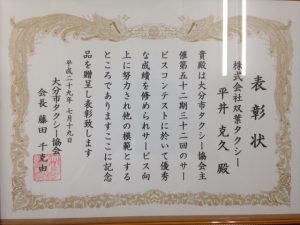 表彰状
株式会社双葉タクシー
平井克久 殿
貴殿は大分市タクシー協会主
催第五十二期三十二回のサー
ビスコンテストに於いて優秀
な成績を修められサービス向
上に努力され他の模範とする
ところでありますここに記念
品を贈呈し表彰致します
平成二十九年七月十九日
大分市タクシー協会
会長 藤田 千克由